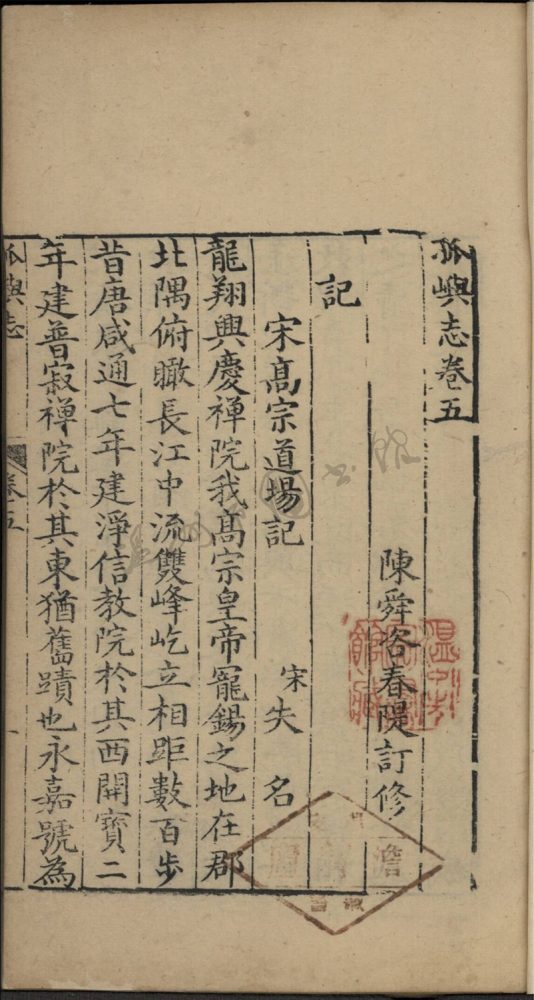 孤嶼志卷五
陳舜咨春隄訂修
記
宋高宗道場記
宋失名
龍翔興慶禪院我高宗皇帝寵錫之地在郡
北隅俯瞰長江中流雙峰屹立相距數百步
昔唐咸通七年建淨信教院於其西開寶二
年建普寂禪院於其東猶舊蹟也永嘉號為
孤嶼志
卷五
一